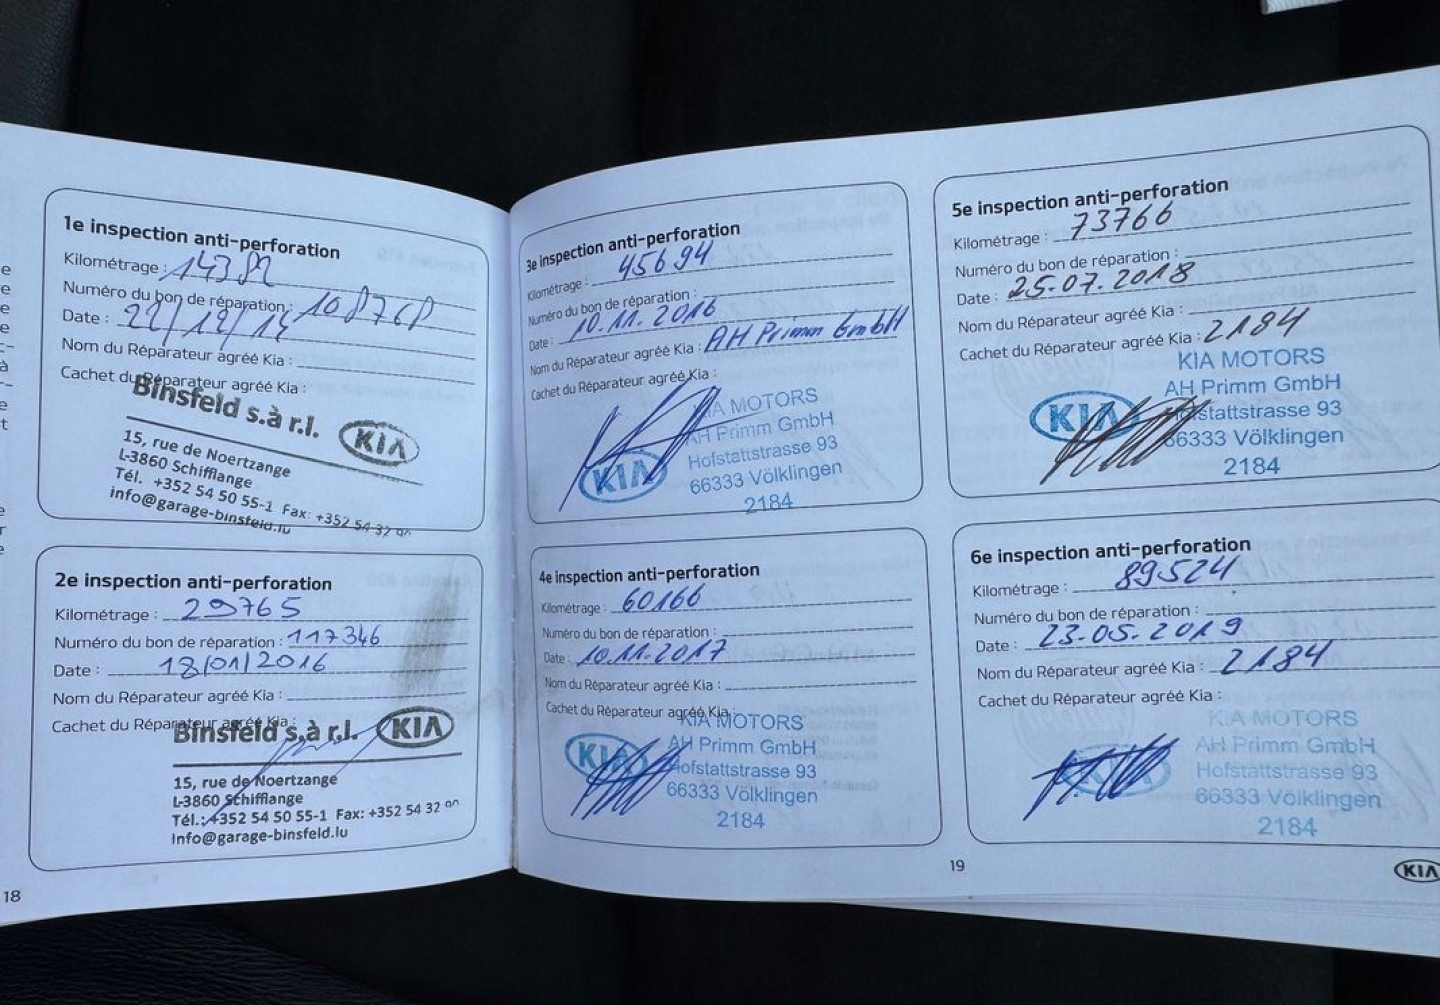 1e inspection anti-perforation
Kilométrage : 14382
Numéro du bon de réparation : 108768
Date : 22/12/14
Nom du Réparateur agréé Kia :
Cachet du Réparateur agréé Kia :
Binsfeld s.à r.l. KIA
15, rue de Noertzange
L-3860 Schifflange
Tél. +352 54 50 55-1 Fax: +352 54 32 90
info@garage-binsfeld.lu
2e inspection anti-perforation
Kilométrage : 29765
Numéro du bon de réparation : 117346
Date : 18/01/2016
Nom du Réparateur agréé Kia :
Cachet du Réparateur agréé Kia :
Binsfeld s.à r.l. KIA
15, rue de Noertzange
L-3860 Schifflange
Tél.: +352 54 50 55-1 Fax: +352 54 32 90
Info@garage-binsfeld.lu
18
3e inspection anti-perforation
Kilométrage : 45694
Numéro du bon de réparation :
Date : 10.11.2016
Nom du Réparateur agréé Kia : AH Primm GmbH
Cachet du Réparateur agréé Kia :
KIA MOTORS
AH Primm GmbH
Hofstattstrasse 93
KIA 66333 Völklingen
2184
4e inspection anti-perforation
Kilométrage : 60166
Numéro du bon de réparation :
Date : 10.11.2017
Nom du Réparateur agréé Kia :
Cachet du Réparateur agréé Kia :
KIA MOTORS
KIA AH Primm GmbH
Hofstattstrasse 93
66333 Völklingen
2184
5e inspection anti-perforation
Kilométrage : 73766
Numéro du bon de réparation :
Date : 25.07.2018
Nom du Réparateur agréé Kia :
Cachet du Réparateur agréé Kia : 2184
KIA MOTORS
AH Primm GmbH
KIA Hofstattstrasse 93
66333 Völklingen
2184
6e inspection anti-perforation
Kilométrage : 89524
Numéro du bon de réparation :
Date : 23.05.2019
Nom du Réparateur agréé Kia : 2184
Cachet du Réparateur agréé Kia :
KIA MOTORS
AH Primm GmbH
KIA Hofstattstrasse 93
66333 Völklingen
2184
19
KIA